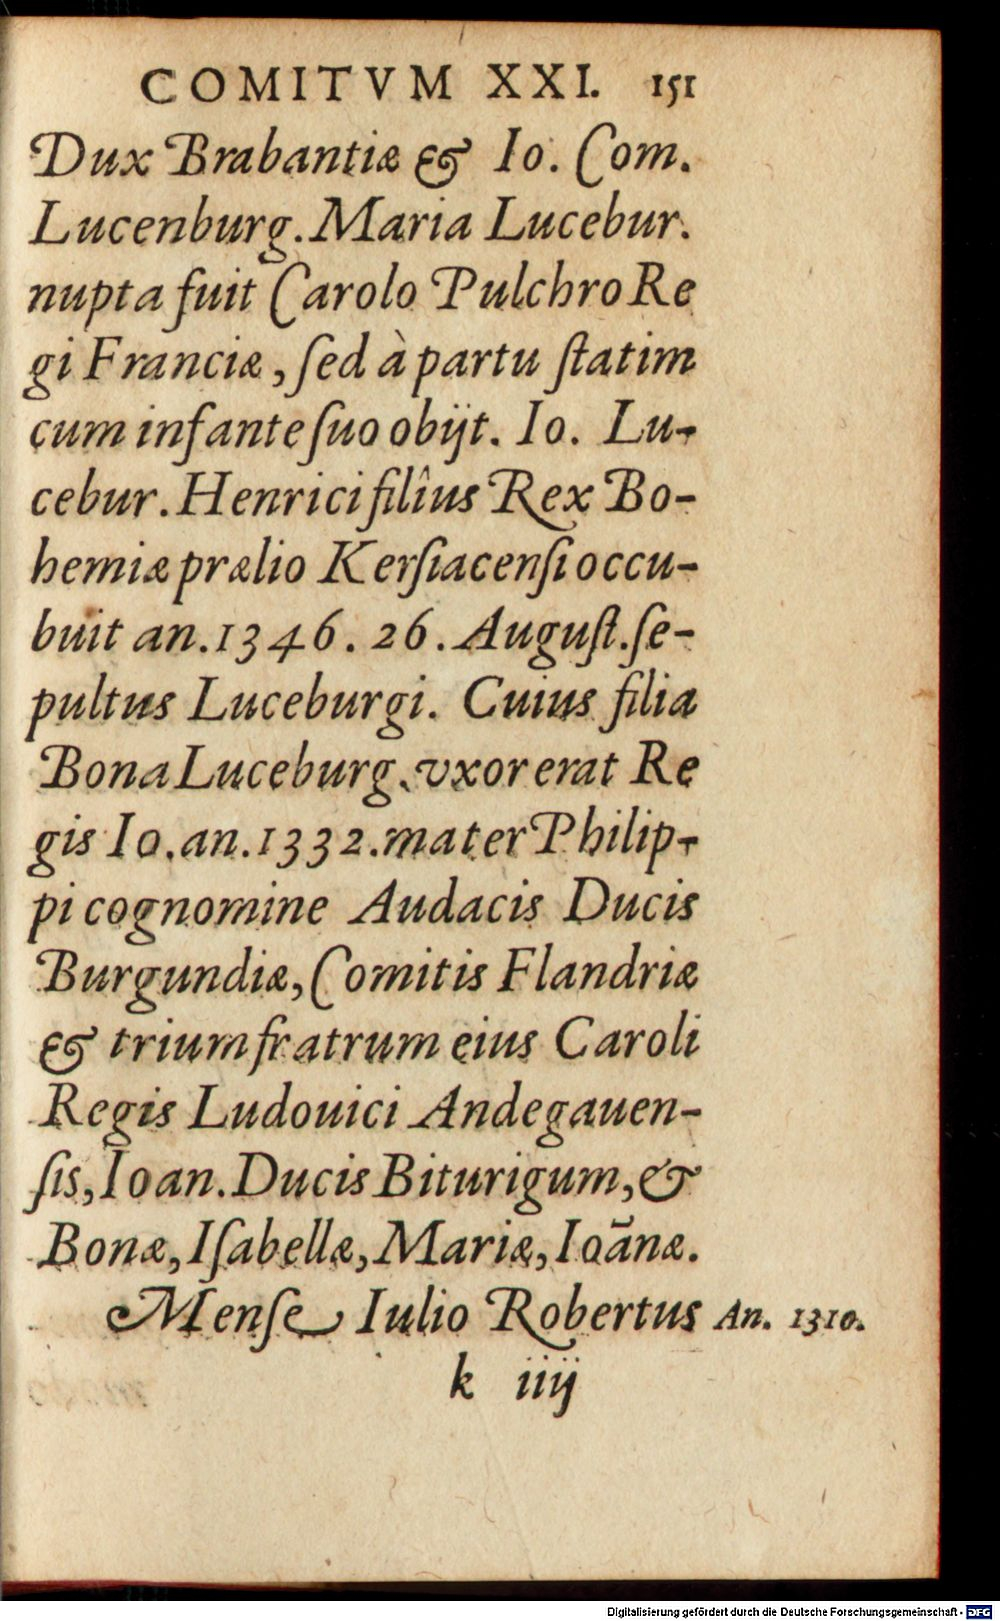 COMITVM XXI. 151
Dux Brabantiæ & Io. Com.
Lucenburg. Maria Lucebur.
nupta fuit Carolo Pulchro Re
gi Franciæ, ſed à partu ſtatim
cum infante ſuo obijt. Io. Lu-
cebur. Henrici filîus Rex Bo-
hemiæ prælio Kerſiacenſi occu-
buit an. 1346. 26. Auguſt. ſe-
pultus Luceburgi. Cuius filia
Bona Luceburg. vxor erat Re
gis Io. an. 1332. mater Philip-
pi cognomine Audacis Ducis
Burgundiæ, Comitis Flandriæ
& trium fratrum eius Caroli
Regis Ludouici Andegauen-
ſis, Ioan. Ducis Biturigum, &
Bonæ, Iſabellæ, Mariæ, Ioãnæ.
Menſe Iulio Robertus An. 1310.
k iiij
Digitalisierung gefördert durch die Deutsche Forschungsgemeinschaft - DFG